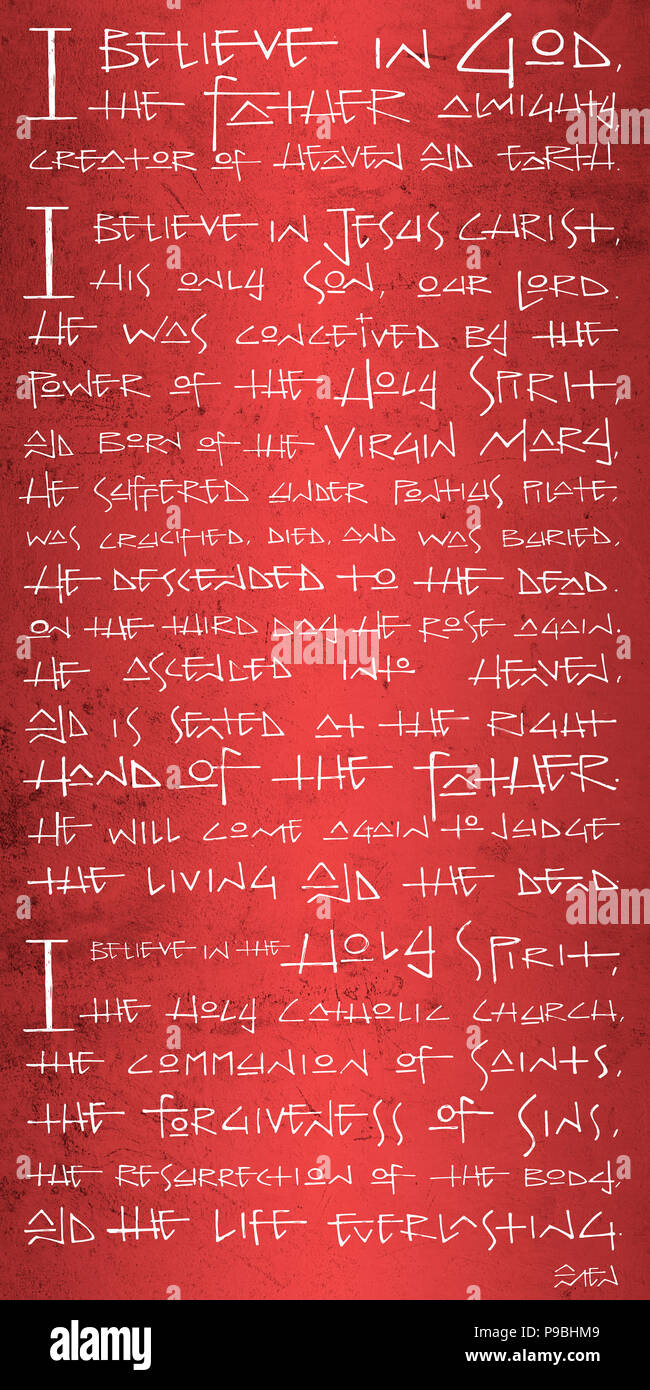 I BELIEVE IN GOD,
THE FATHER ALMIGHTY,
CREATOR OF HEAVEN AND EARTH.
I BELIEVE IN JESUS CHRIST,
HIS ONLY SON, OUR LORD.
HE WAS CONCEIVED BY THE
POWER OF THE HOLY SPIRIT,
AND BORN OF THE VIRGIN MARY,
HE SUFFERED UNDER PONTIUS PILATE,
WAS CRUCIFIED, DIED, AND WAS BURIED,
HE DESCENDED TO THE DEAD.
ON THE THIRD DAY HE ROSE AGAIN.
HE ASCENDED INTO HEAVEN,
AND IS SEATED AT THE RIGHT
HAND OF THE FATHER.
HE WILL COME AGAIN TO JUDGE
THE LIVING AND THE DEAD.
I BELIEVE IN THE HOLY SPIRIT,
THE HOLY CATHOLIC CHURCH,
THE COMMUNION OF SAINTS,
THE FORGIVENESS OF SINS,
THE RESURRECTION OF THE BODY,
AND THE LIFE EVERLASTING.
AMEN
alamy
Image ID: P9BHM9
www.alamy.com